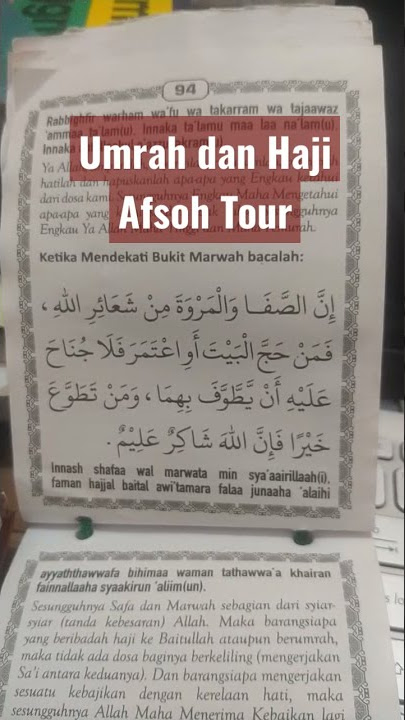 94
Rabbighfir warham wa'fu wa takarram wa tajaawaz
'ammaa ta'lam(u). Innaka ta'lamu maa laa na'lam(u).
Innaka
Umrah dan Haji
Ya Allah
hatilah dan hapuskanlah apa-apa yang Engkau ketahui
dari dosa kami. Maha Mengetahui
apa-apa yang
Afsoh Tour
Engkau Ya Allah
Ketika Mendekati Bukit Marwah bacalah:
إِنَّ الصَّفَا وَالْمَرْوَةَ مِنْ شَعَائِرِ اللهِ ،
فَمَنْ حَجَّ الْبَيْتَ أَوِ اعْتَمَرَ فَلَا جُنَاحَ
عَلَيْهِ أَنْ يَطَّوَّفَ بِهِمَا ، وَمَنْ تَطَوَّعَ
خَيْرًا فَإِنَّ اللهَ شَاكِرٌ عَلِيْمٌ .
Innash shafaa wal marwata min sya'aairillaah(i),
faman hajjal baital awi'tamara falaa junaaha 'alaihi
ayyaththawwafa bihimaa waman tathawwa'a khairan
fainnallaaha syaakirun 'aliim(un).
Sesungguhnya Safa dan Marwah sebagian dari syiar-
syiar (tanda kebesaran) Allah. Maka barangsiapa
yang beribadah haji ke Baitullah ataupun berumrah,
maka tidak ada dosa baginya berkeliling (mengerjakan
Sa'i antara keduanya). Dan barangsiapa mengerjakan
sesuatu kebajikan dengan kerelaan hati, maka
sesungguhnya Allah Maha Menerima Kebaikan lagi